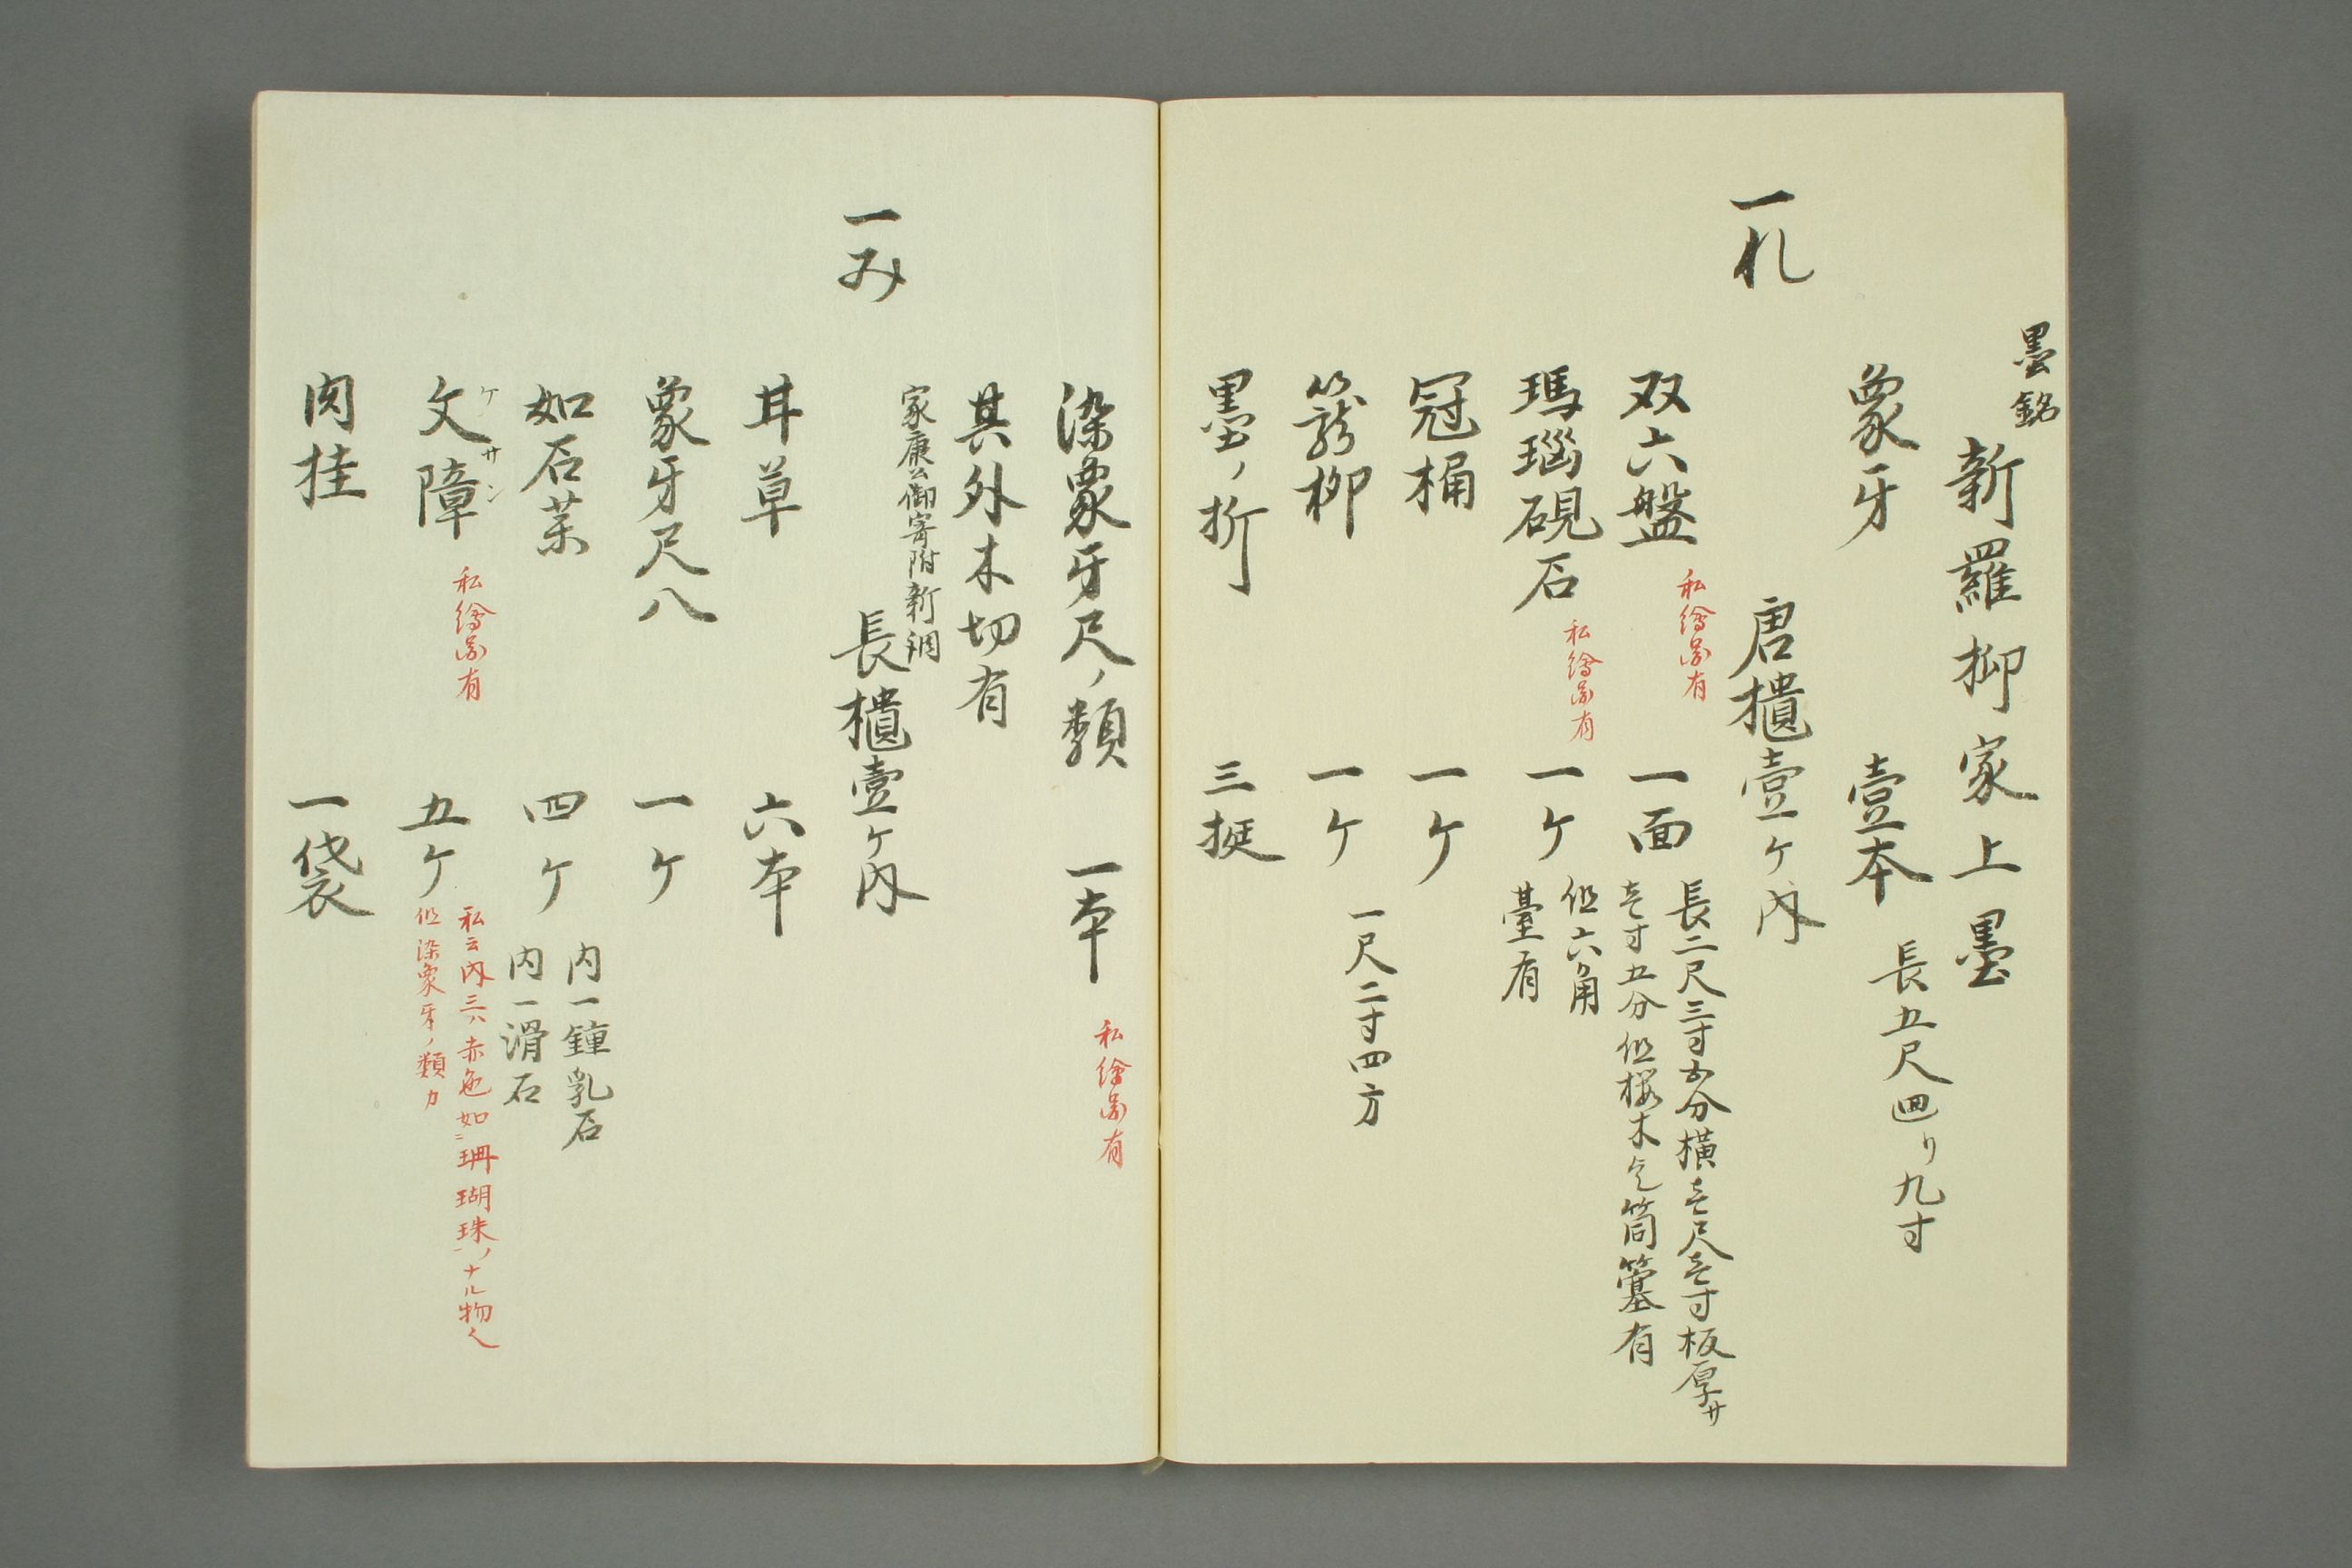 墨銘
新羅柳家上墨
象牙 壹本 長五尺廻リ九寸
一れ 唐櫃壹ケ内
双六盤 私繪圖有 一面 長二尺三寸五分横壱尺壱寸板厚サ
壱寸五分但桜木也筒簺有
瑪瑙硯石 私繪圖有 一ケ 但六角
臺有
冠桶 一ケ
籠柳 一ケ 一尺二寸四方
墨ノ折 三挺
染象牙尺ノ類 一本 私繪圖有
其外木切有
家康公御寄附新調
一み 長櫃壹ケ内
甘草 六本
象牙尺八 一ケ
如石茱 四ケ 内一鐘乳石
内一滑石
ケサン
文障 私繪圖有 五ケ 私云内三ハ赤色如ニ珊瑚珠ノナル物也
但染象牙ノ類カ
肉桂 一袋